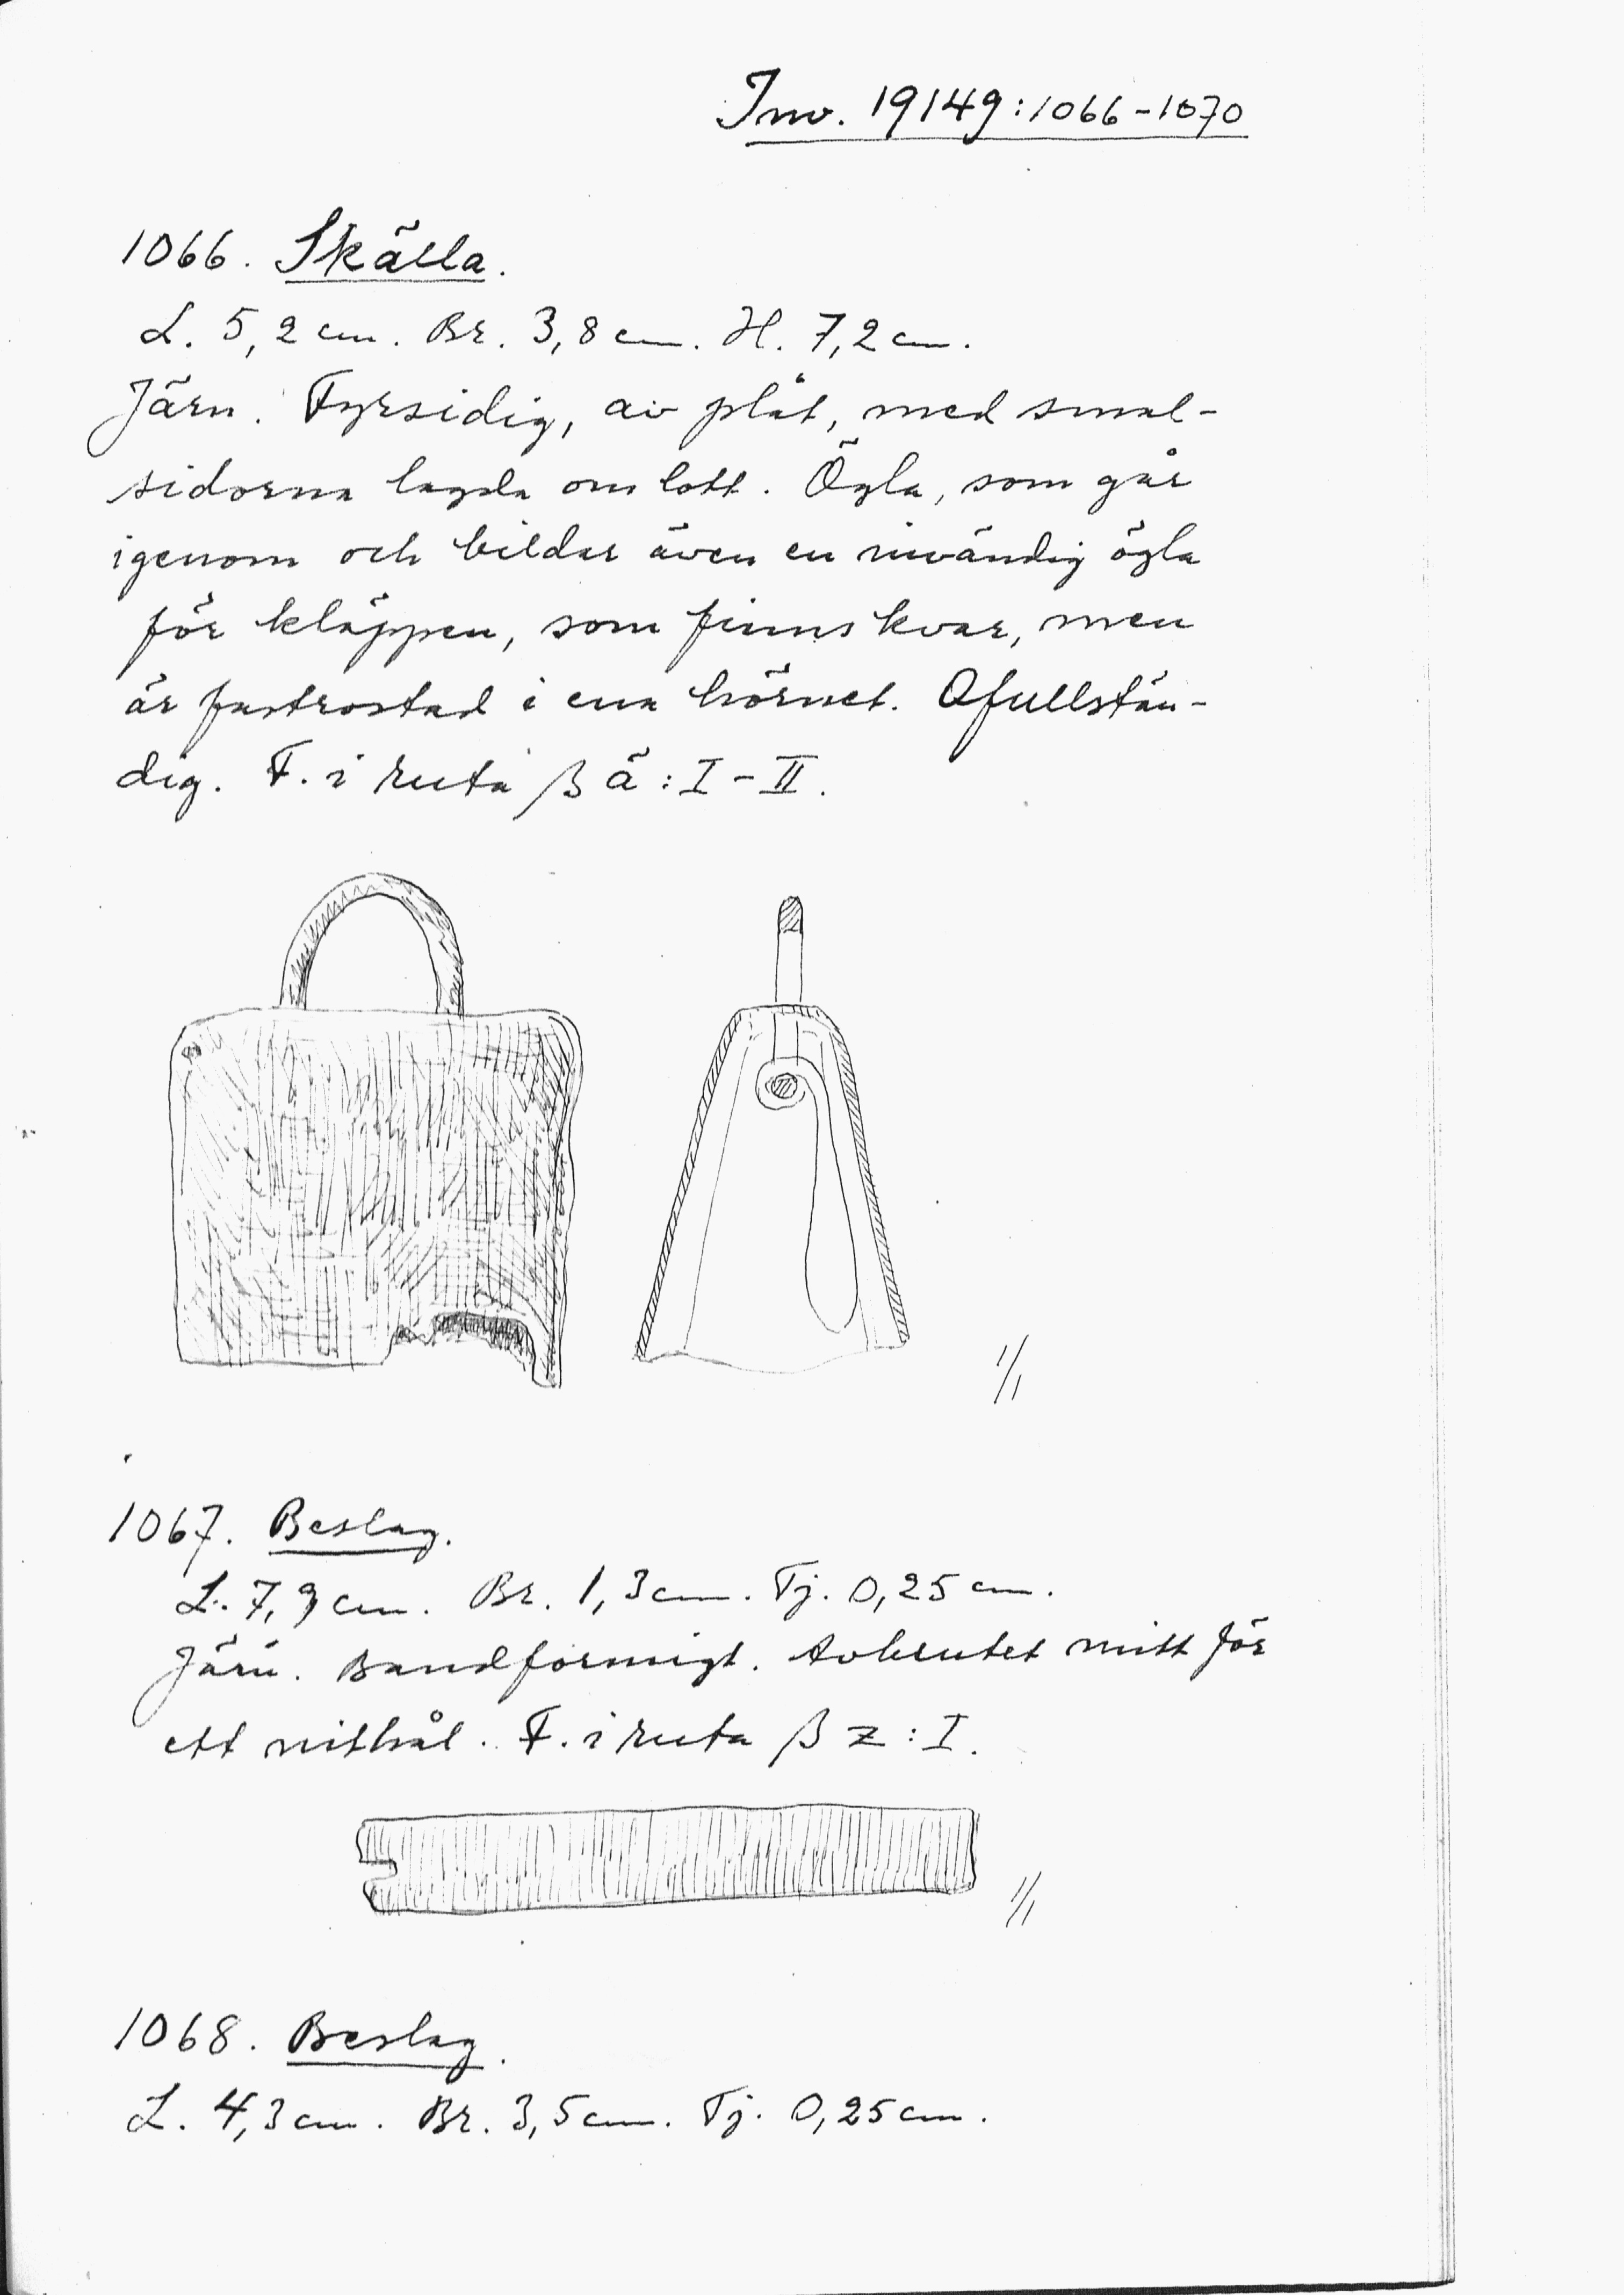 Inv. 19149:1066-1070
1066. Skälla.
L. 5,2 cm. Br. 3,8 cm. H. 7,2 cm.
Järn. Fyrsidig, av plåt, med smal-
sidorna lagda om lott. Ögla, som går
igenom och bildar även en invändig ögla
för kläppen, som finns kvar, men
är fastrostad i ena hörnet. Ofullstän-
dig. F. i ruta β ä : I - II.
1/1
1067. Beslag.
L. 7,9 cm. Br. 1,3 cm. Tj. 0,25 cm.
Järn. Bandformigt. Avbrutet mitt för
ett nithål. F. i ruta β z : I.
1/1
1068. Beslag.
L. 4,3 cm. Br. 3,5 cm. Tj. 0,25 cm.